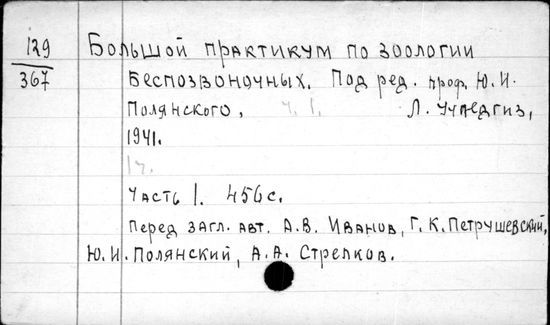 129
367
Большой практикум по зоологии
беспозвоночных. Под ред. проф. Ю.И.
Полянского, ч. 1. Л. Учпедгиз,
1941.
1 ч.
Часть 1. 456 с.
Перед загл. авт. А.В. Иванов, Г.К. Петрушевский,
Ю.И. Полянский, А.А. Стрелков.